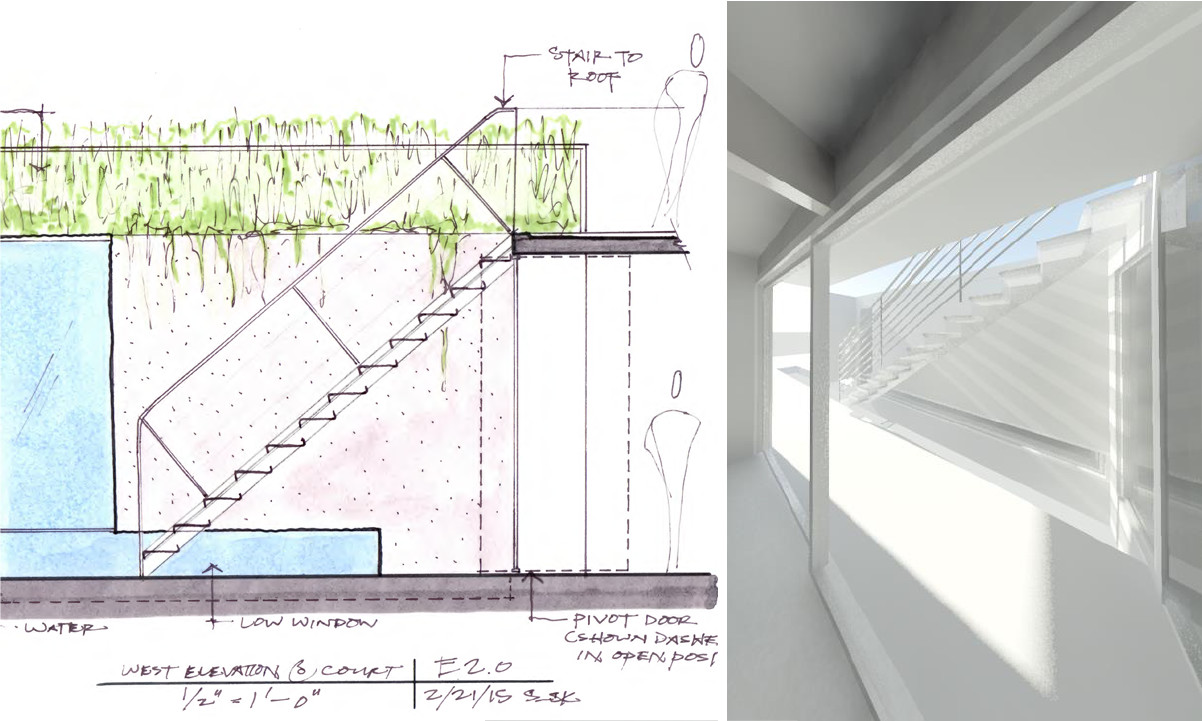 STAIR TO
ROOF
WATER
LOW WINDOW
PIVOT DOOR
(SHOWN DASHE
IN OPEN POSI
WEST ELEVATION @ COURT
E2.0
1/2" = 1'-0"
2/21/15